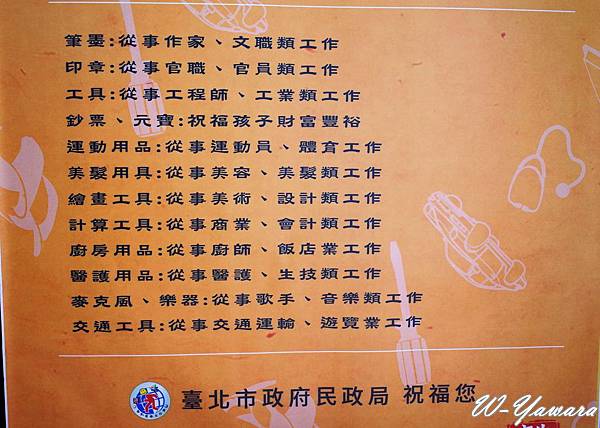 筆墨:從事作家、文職類工作
印章:從事官職、官員類工作
工具:從事工程師、工業類工作
鈔票、元寶:祝福孩子財富豐裕
運動用品:從事運動員、體育工作
美髮用具:從事美容、美髮類工作
繪畫工具:從事美術、設計類工作
計算工具:從事商業、會計類工作
廚房用品:從事廚師、飯店業工作
醫護用品:從事醫護、生技類工作
麥克風、樂器:從事歌手、音樂類工作
交通工具:從事交通運輸、遊覽業工作
臺北市政府民政局 祝福您
W-Yawara